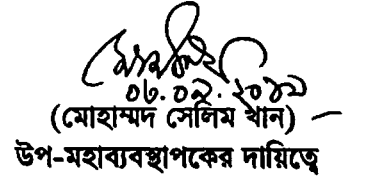 ০৬.০২.২০১৯
(মোহাম্মদ সেলিম খান)
উপ-মহাব্যবস্থাপকের দায়িত্বে